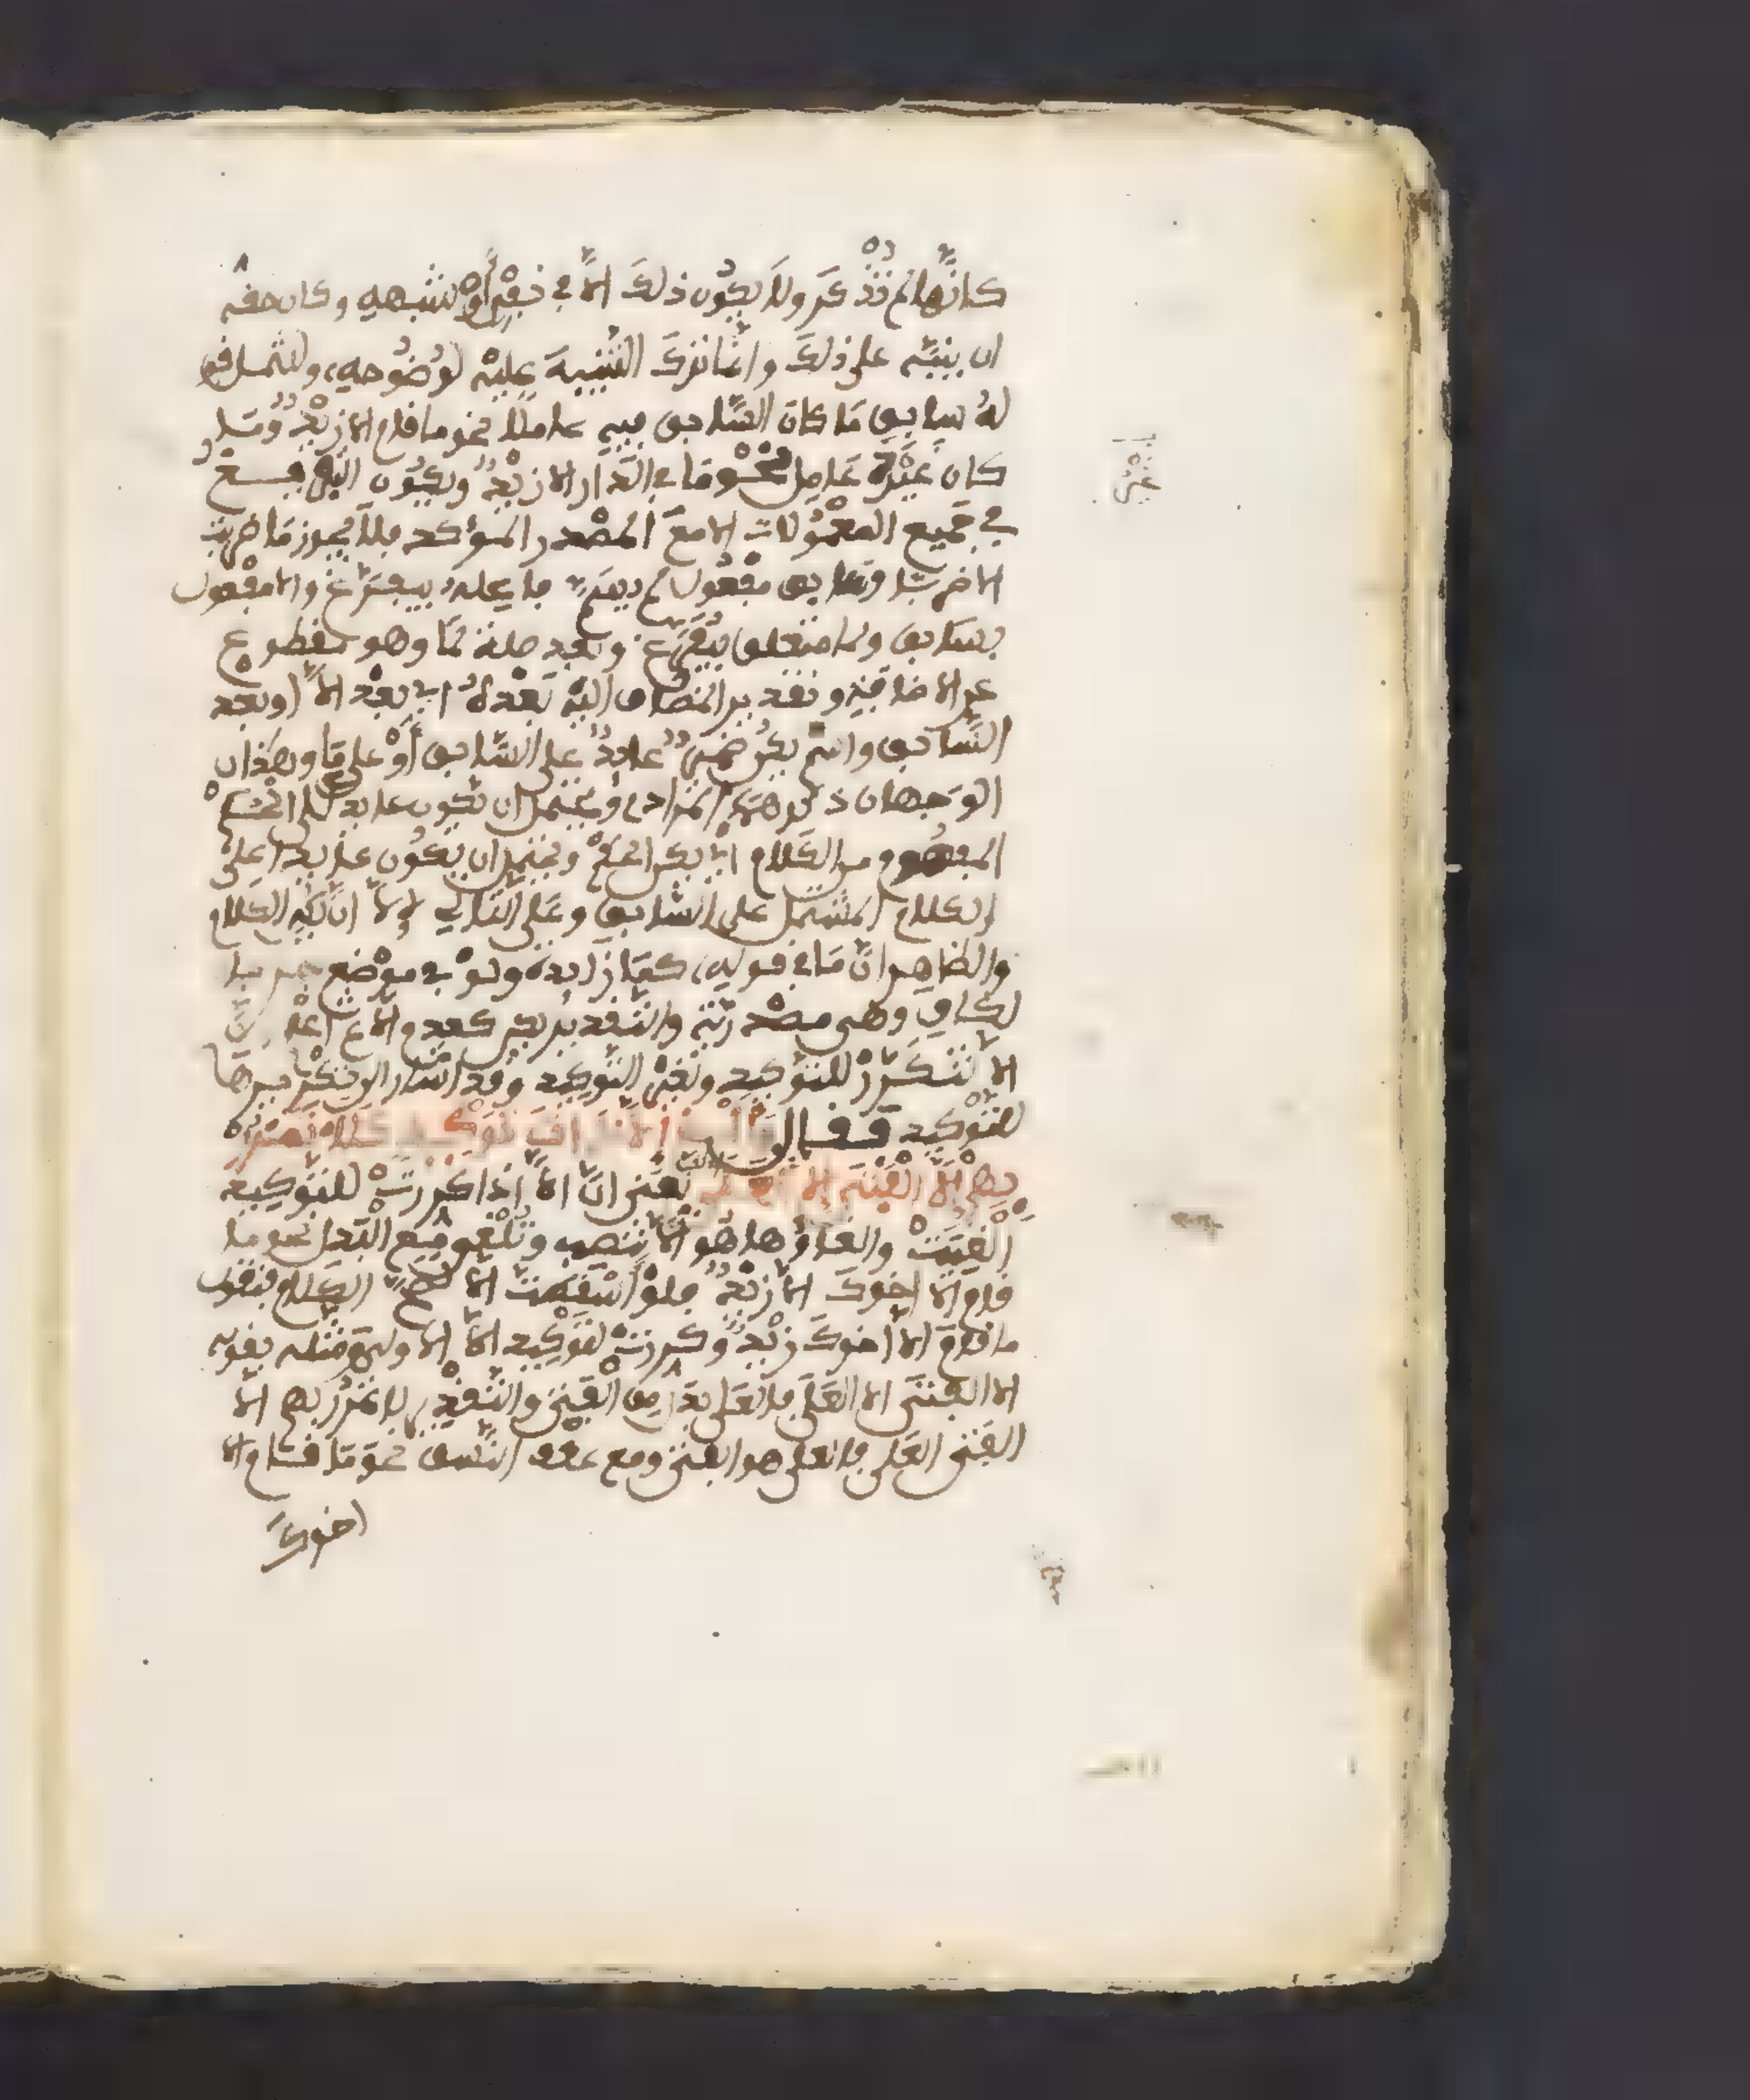 كانها لم تذكر ولا يكون ذلك الا في نفي او شبهه وكان حقه
ان ينبه على ذلك وانما ترك التنبيه عليه لوضوحه وشمل قو
له سابق ما كان السابق فيه عاملا نحو ما قام الا زيد وما
كان غير عامل نحو ما في الدار الا زيد ويكون التفريغ
في جميع المعمولات الا مع المصدر المؤكد فلا يجوز ما ضربت
الا ضربا وسابق مفعول لم يسم فاعله بيفرغ والا مفعول
بسابق ولما متعلق بيفرغ وبعد صلة لما وهو مقطوع
عن الاضافة وتقدير المضاف اليه بعده اي بعد الا او بعد
السابق واسم يكن ضمير عايد على السابق او على ما وهذان
الوجهان ذكرهما المرادي ويحتمل ان يكون عايدا على الحكم
المفهوم من الكلام اي يكن الحكم ويحتمل ان يكون عايدا على
الكلام المشتمل على السابق وعلى التالي والا اي يكن الكلام
والظاهر ان ما في قوله كما زايدة ولو في موضع جر با
لكاف وهي مصدرية والتقدير يكن كعدم الا ثم اعلم ان
الا تتكرر للتوكيد ولغير التوكيد وقد اشار الى تكريرها
للتوكيد فقال والغ الا ذات توكيد كلا تمرر
بهم الا الفتى الا العلا يعني ان الا اذا كررت للتوكيد
الغيت والغاؤها هو الا تنصب وتلغى مع البدل نحو ما
قام الا اخوك الا زيد فلو اسقطت الا لصح الكلام فتقول
ما قام الا اخوك زيد وكررت لتوكيد الا الاولى ومثله بقوله
الا الفتى الا العلى فالعلى بدل من الفتى والتقدير لا تمرر بهم الا
الفتى العلى فالعلى هو الفتى ومع عطف النسق نحو ما قام الا
اخوك